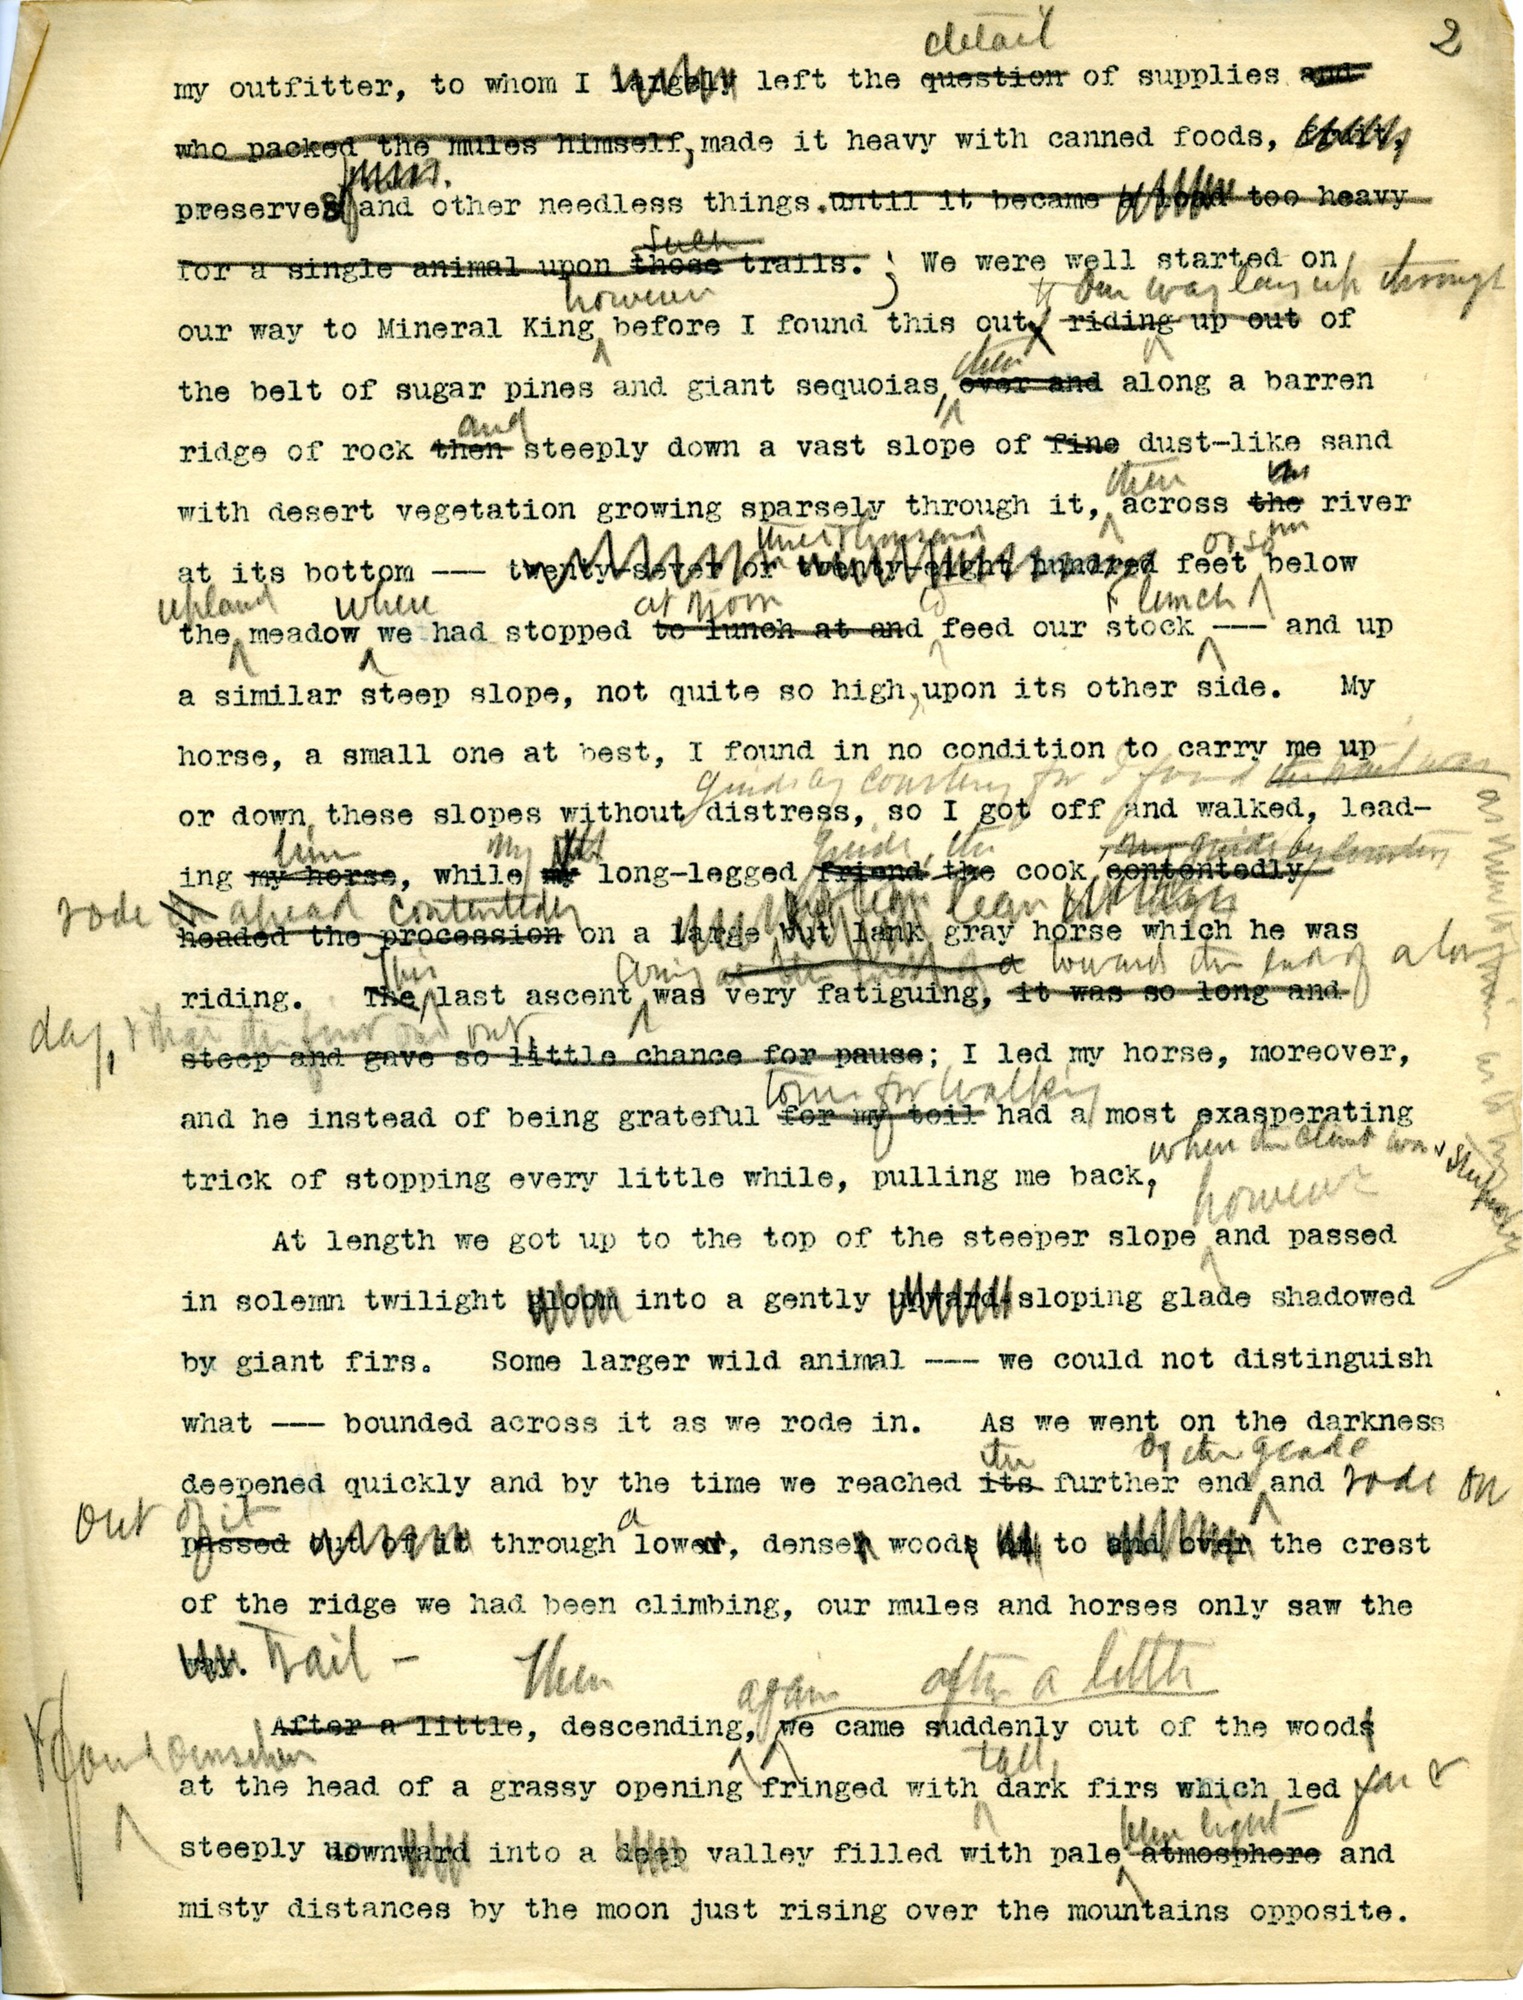 2
detail
my outfitter, to whom I largely left the question of supplies and
who packed the mules himself, made it heavy with canned foods,
preserves and other needless things. until it became a load too heavy
such
for a single animal upon those trails. ; We were well started on
however & Our way lay up through
our way to Mineral King before I found this out, riding up out of
then
the belt of sugar pines and giant sequoias, over and along a barren
and
ridge of rock then steeply down a vast slope of fine dust-like sand
then
with desert vegetation growing sparsely through it, across the river
three thousand or so
at its bottom --- twenty-seven or twenty-eight hundred feet below
upland when at noon to & lunch
the meadow we had stopped to lunch at and feed our stock --- and up
a similar steep slope, not quite so high, upon its other side. My
horse, a small one at best, I found in no condition to carry me up
or down these slopes without distress, so I got off and walked, lead-
him my guide, the
ing my horse, while my long-legged friend the cook contentedly
rode ahead contentedly lean
headed the procession on a large but lank gray horse which he was
This coming towards the end of a long
riding. The last ascent was very fatiguing, it was so long and
day,
steep and gave so little chance for pause; I led my horse, moreover,
for walking
and he instead of being grateful for my toil had a most exasperating
when the climb was steepest
trick of stopping every little while, pulling me back,
however
At length we got up to the top of the steeper slope and passed
in solemn twilight gloom into a gently upward sloping glade shadowed
by giant firs. Some larger wild animal --- we could not distinguish
what --- bounded across it as we rode in. As we went on the darkness
the of the glade
deepened quickly and by the time we reached its further end and rode on
out of it a
passed out of it through lower, denser woods to and over the crest
of the ridge we had been climbing, our mules and horses only saw the
way. Trail -
Then again after a little
After a little, descending, we came suddenly out of the woods
& found ourselves tall,
at the head of a grassy opening fringed with dark firs which led far &
blue light
steeply downward into a deep valley filled with pale atmosphere and
misty distances by the moon just rising over the mountains opposite.